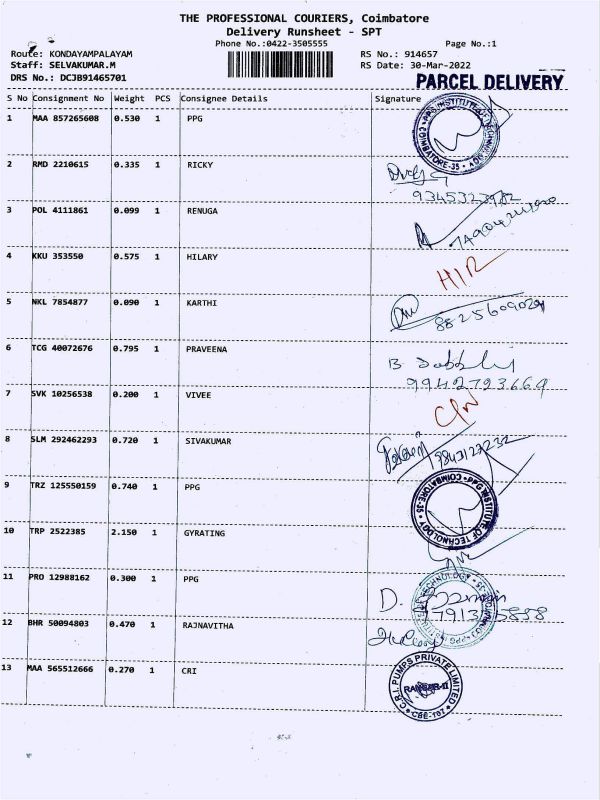 THE PROFESSIONAL COURIERS, Coimbatore
Delivery Runsheet - SPT
Phone No.:0422-3505555 Page No.:1
Route: KONDAYAMPALAYAM RS No.: 914657
Staff: SELVAKUMAR.M RS Date: 30-Mar-2022
DRS No.: DCJB91465701
PARCEL DELIVERY
S No Consignment No Weight PCS Consignee Details Signature
1 MAA 857265608 0.530 1 PPG
PPG INSTITUTE OF TECHNOLOGY COIMBATORE-35
2 RMD 2210615 0.335 1 RICKY
3 POL 4111861 0.099 1 RENUGA
4 KKU 353550 0.575 1 HILARY
5 NKL 7854877 0.090 1 KARTHI
8825609029
6 TCG 40072676 0.795 1 PRAVEENA
9942793669
7 SVK 10256538 0.200 1 VIVEE
8 SLM 292462293 0.720 1 SIVAKUMAR
9843127232
9 TRZ 125550159 0.740 1 PPG
PPG INSTITUTE OF TECHNOLOGY COIMBATORE-35
10 TRP 2522385 2.150 1 GYRATING
11 PRO 12988162 0.300 1 PPG
12 BHR 50094803 0.470 1 RAJNAVITHA
13 MAA 565512666 0.270 1 CRI
C.R.I. PUMPS PRIVATE LIMITED
CBE-107